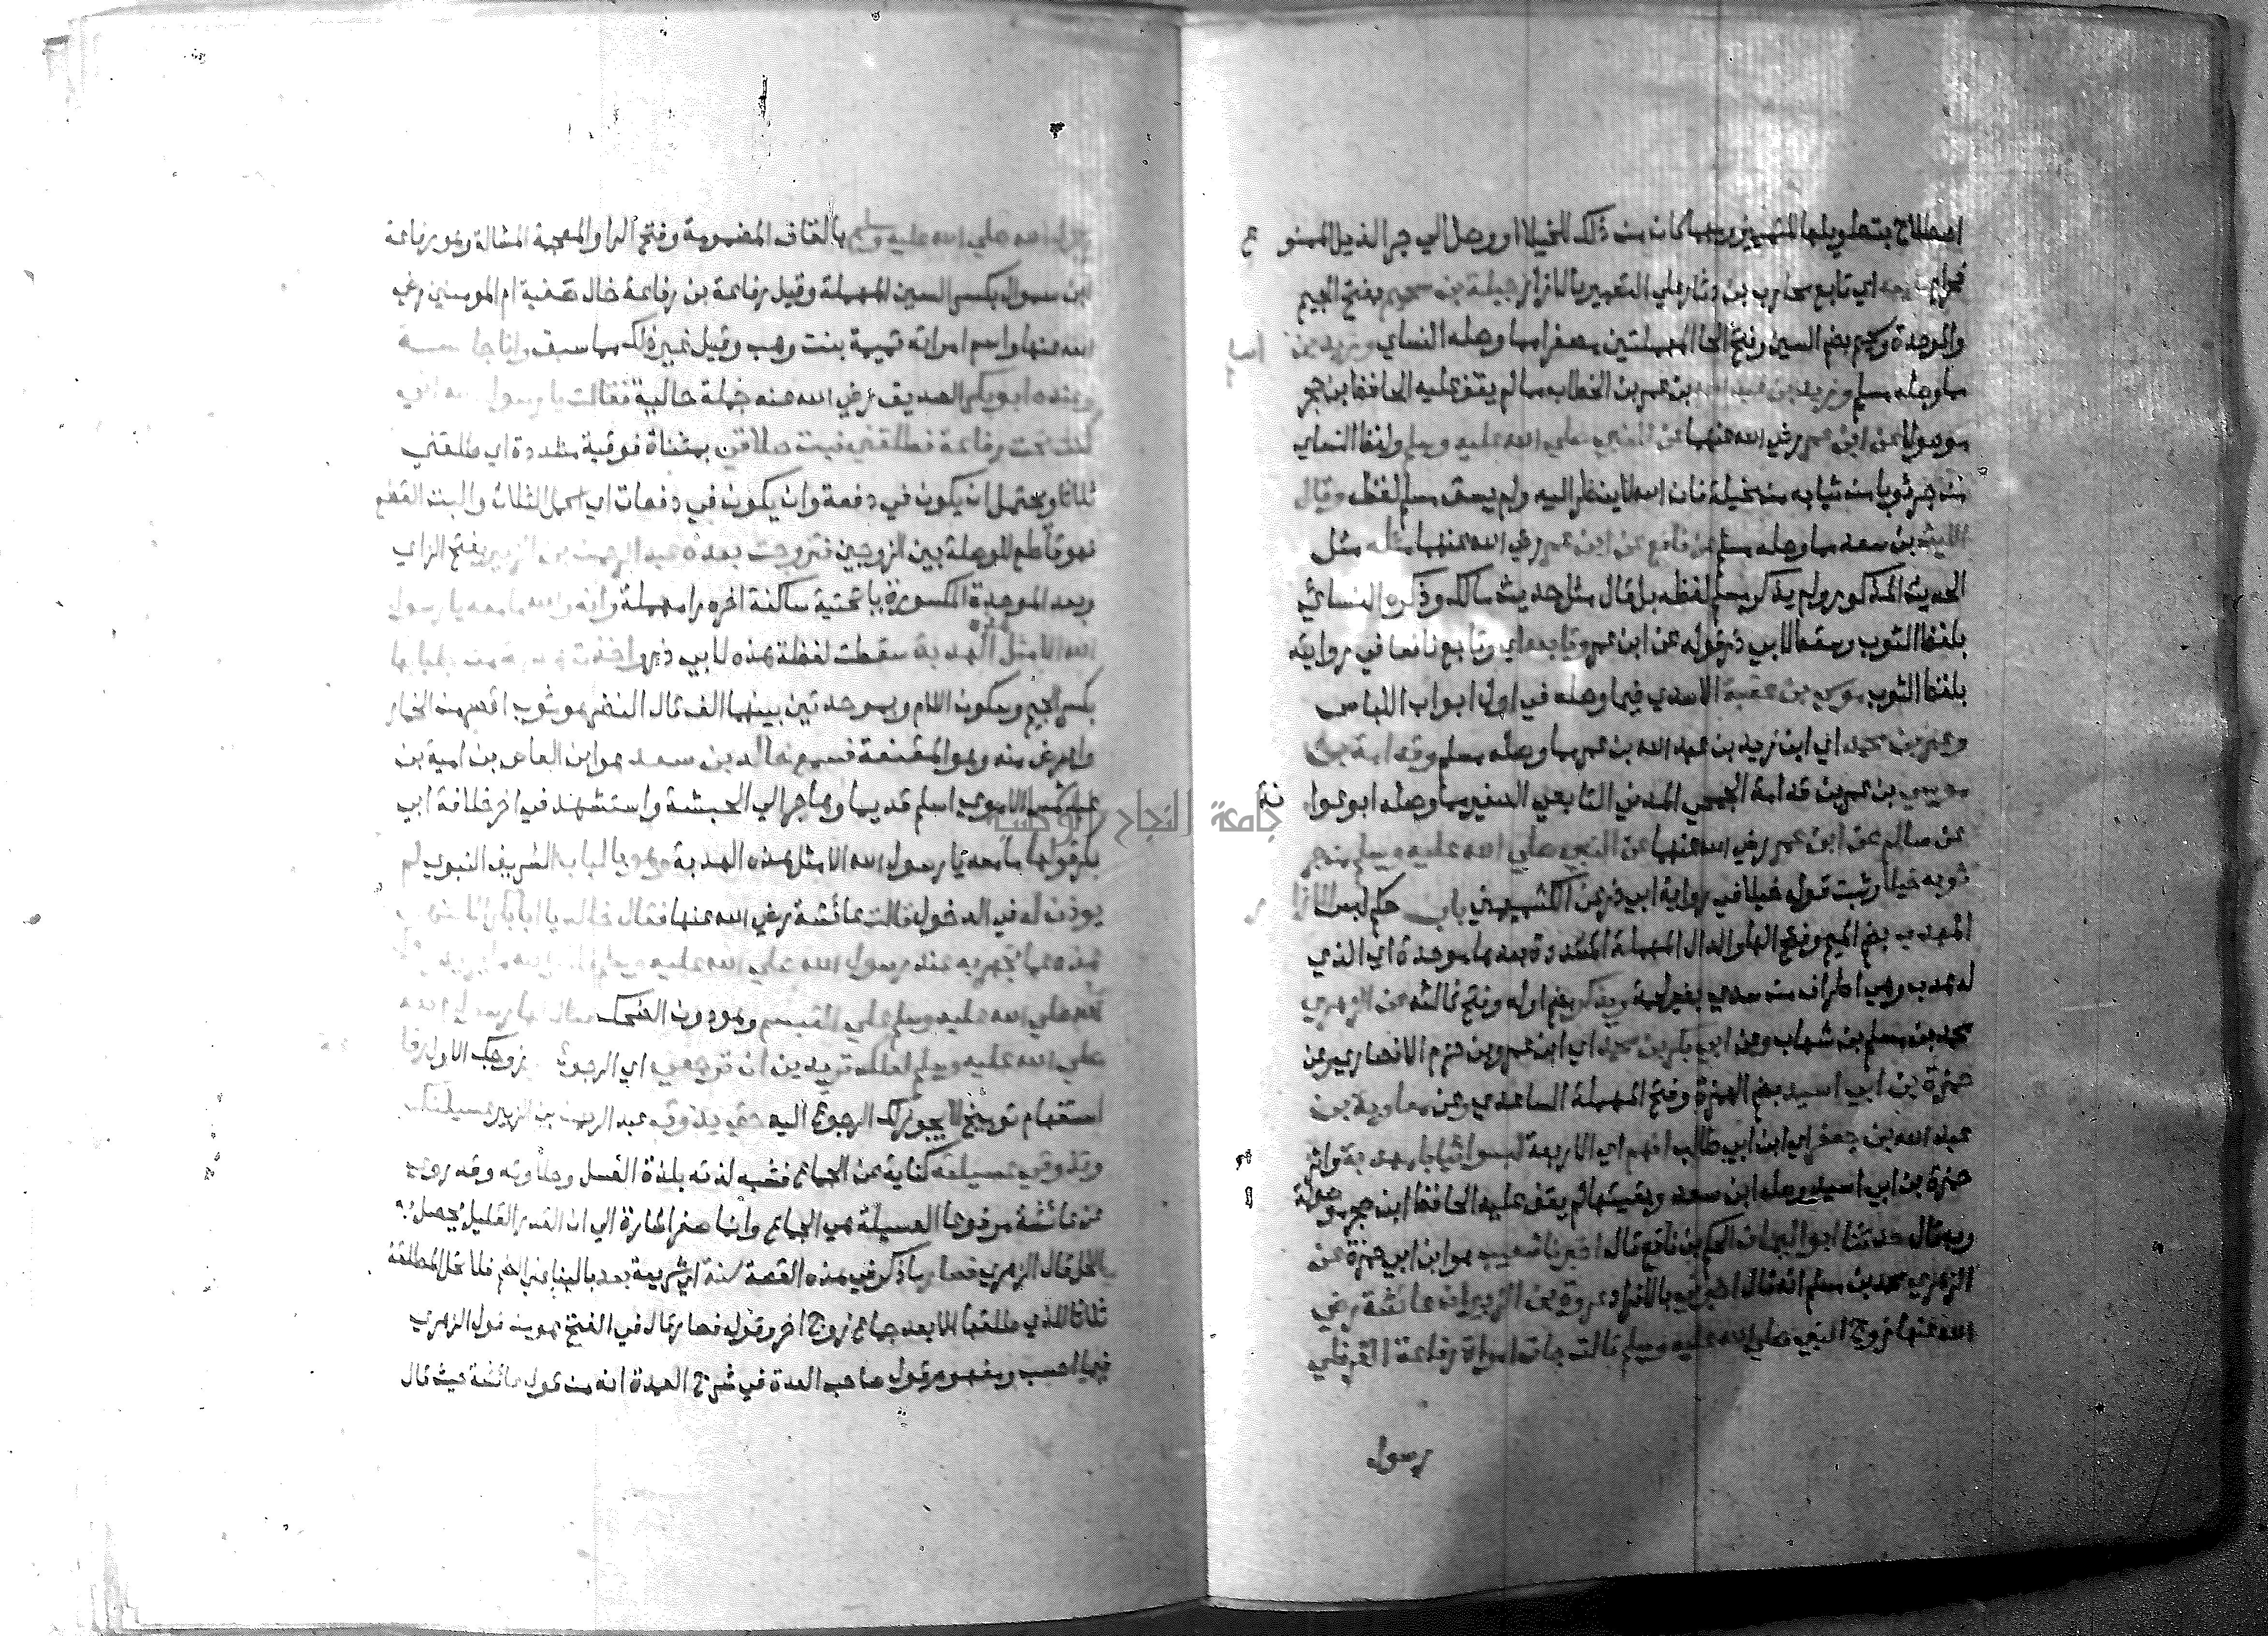 اصطلاح بتطويلها للتمييز ومهما كان من ذلك للخيلا او وصل الي جر الذيل الممنوع
فحرام تابعه اي تابع محارب بن دثار علي التعبير بالازار جبلة بن سحيم بفتح الجيم
والموحدة وسحيم بضم السين وفتح الحا المهملتين مصغرا مما وصله النساي وزيد بن اسلم
مما وصله مسلم وزيد بن عبد الله بن عمر بن الخطاب مما لم يقف عليه الحافظ ابن حجر
موصولا عن ابن عمر رضي الله عنهما عن النبي صلي الله عليه وسلم ولفظ النساي
من جر ثوبا من ثيابه من مخيلة فان الله لا ينظر اليه ولم يسق مسلم لفظه وقال
الليث بن سعد مما وصله مسلم عن نافع عن ابن عمر رضي الله عنهما مثله مثل
الحديث المذكور ولم يذكر مسلم لفظه بل قال مثل حديث مالك وذكره النسائي
بلفظ الثوب وسقط لابي ذر قوله عن ابن عمر وتابعه اي وتابع نافعا في روايته
بلفظ الثوب موسي بن عقبة الاسدي فيما وصله في اول ابواب اللباس
وعمر بن محمد اي ابن زيد بن عبد الله بن عمر مما وصله مسلم وقدامة بن
موسي بن عمر بن قدامة الجمحي المدني التابعي الصغير مما وصله ابو عوانة
عن سالم عن ابن عمر رضي الله عنهما عن النبي صلي الله عليه وسلم من جر
ثوبه خيلا وثبت قوله خيلا في رواية ابي ذر عن الكشميهني باب حكم لبس الازار
المهدب بضم الميم وفتح الها والدال المهملة المشددة بعدها موحدة اي الذي
له هدب وهي اطراف من سدي بغير لحمة ويذكر بضم اوله وفتح ثالثه عن الزهري
محمد بن مسلم بن شهاب وعن ابي بكر بن محمد اي ابن عمرو بن حزم الانصاري وعن
حمزة بن ابي اسيد بضم الهمزة وفتح المهملة الساعدي وعن معاوية بن
عبد الله بن جعفر اي ابن ابي طالب انهم اي الاربعة لبسوا ثيابا مهدبة واثر
حمزة بن ابي اسيد وصله ابن سعد وبقيتها لم يقف عليه الحافظ ابن حجر موصولة
وبه قال حدثنا ابو اليمان الحكم بن نافع قال اخبرنا شعيب هو ابن ابي حمزة عن
الزهري محمد بن مسلم انه قال اخبرني بالافراد عروة بن الزبير ان عائشة رضي
الله عنها زوج النبي صلي الله عليه وسلم قالت جات امراة رفاعة القرظي
رسول
رسول الله صلي الله عليه وسلم بالقاف المضمومة وفتح الرا والمعجمة المشالة وهو رفاعة
ابن سموال بكسر السين المهملة وقيل رفاعة بن رفاعة خال صفية ام المومنين رضي
الله عنها واسم امراته تميمة بنت وهب وقيل غير ذلك مما سبق وانا جالسة
وعنده ابو بكر الصديق رضي الله عنه جملة حالية فقالت يا رسول الله اني
كنت تحت رفاعة فطلقني فبت طلاقي بمثناة فوقية مشددة اي طلقني
ثلاثا ويحتمل ان يكون في دفعة وان يكون في دفعات اي اكمل الثلاث والبت القطع
فهو قاطع للوصلة بين الزوجين فتزوجت بعده عبد الرحمن بن الزبير بفتح الزاي
وبعد الموحدة المكسورة يا تحتية ساكنة اخره را مهملة وانه والله ما معه يا رسول
الله الا مثل الهدبة سقطت لفظة هذه لابي ذر واخذت هدبة من جلبابها
بكسر الجيم وسكون اللام وبموحدتين بينهما الف قال النضر هو ثوب اقصر من الخمار
واعرض منه وهو المقنعة فسمع خالد بن سعيد هو ابن العاص بن امية بن
عبد شمس الاموي اسلم قديما وهاجر الي الحبشة واستشهد في اخر خلافة ابي
بكر قولها ما معه يا رسول الله الا مثل هذه الهدبة وهو بالباب الشريف النبوي لم
يوذن له في الدخول قالت عائشة رضي الله عنها فقال خالد يا ابا بكر الا تنهي
هذه عما تجهر به عند رسول الله صلي الله عليه وسلم
الله صلي الله عليه وسلم علي التبسم وهو دون الضحك فقال لها رسول الله
صلي الله عليه وسلم لعلك تريدين ان ترجعي اي الرجوع لزوجك الاول رفاعة
استفهام توبيخ لا يجوز لك الرجوع اليه حتي يذوق عبد الرحمن بن الزبير عسيلتك
وتذوقي عسيلته كناية عن الجماع فشبه لذته بلذة العسل وحلاوته وقد روي
عن عائشة مرفوعا العسيلة هي الجماع وانما صغر اشارة الي ان القدر القليل يحصل به
الحل قال الزهري فصار ما ذكر في هذه القصة سنة اي شريعة بعد بالبنا علي الضم فلا تحل المطلقة
ثلاثا للذي طلقها الا بعد جماع زوج اخر وقوله فصار قال في الفتح هو من قول الزهري
فيما احسب ومفهوم قول صاحب العدة في شرح العمدة انه من قول عائشة حيث قال
جامعة النجاح الوطنية